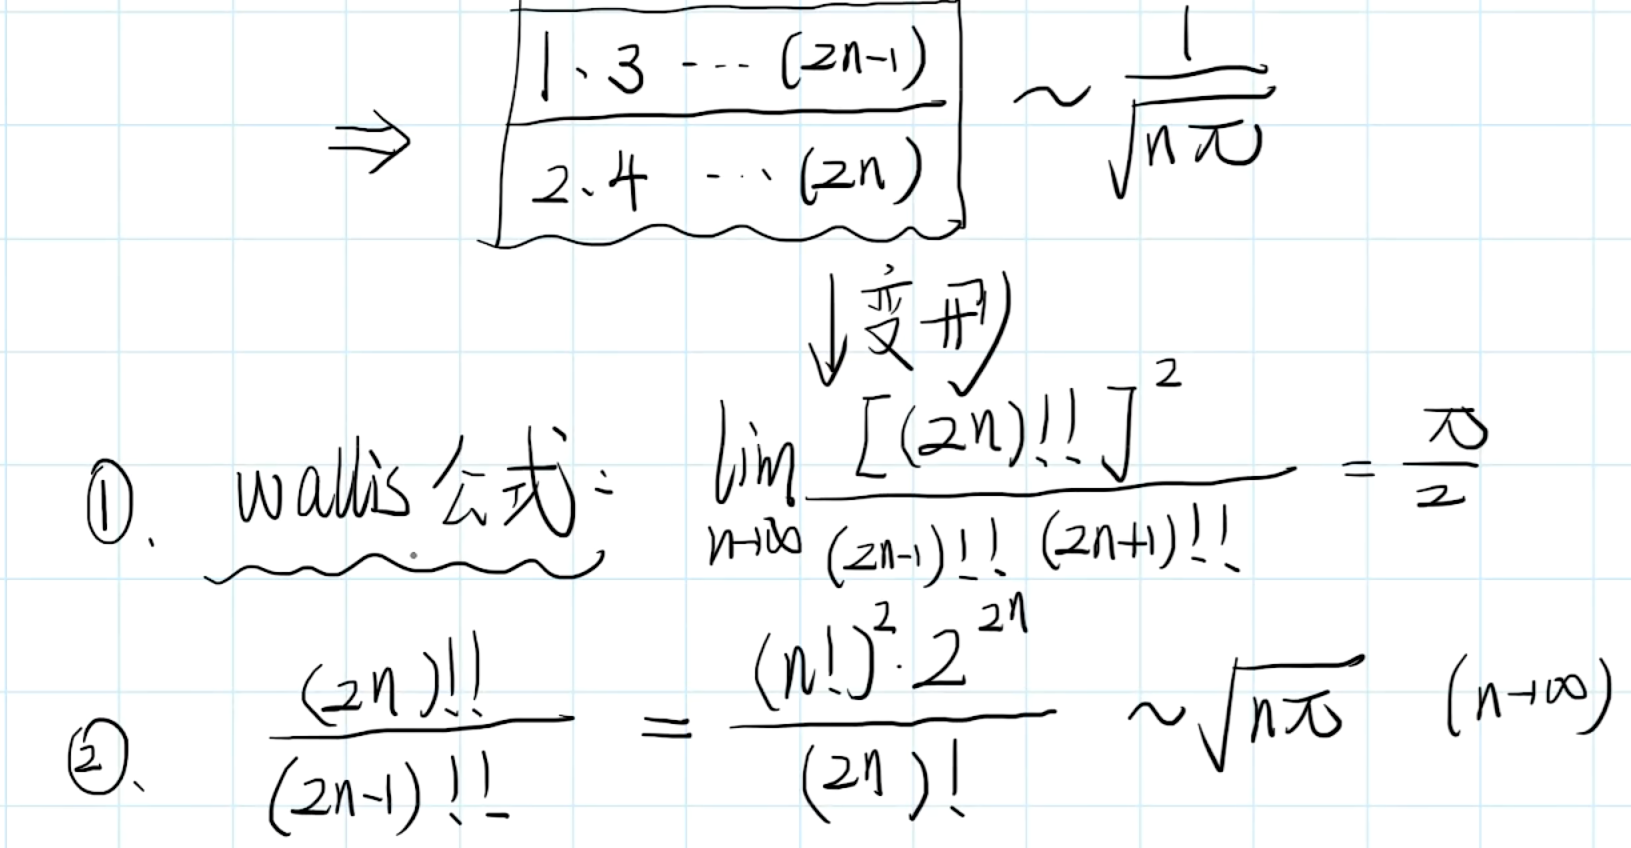 ⇒ \frac{1·3 ··· (2n-1)}{2·4 ··· (2n)} ~ \frac{1}{\sqrt{nπ}}
↓变形
①. wallis公式: \lim_{n→∞} \frac{[(2n)!!]^2}{(2n-1)!! (2n+1)!!} = \frac{π}{2}
②、 \frac{(2n)!!}{(2n-1)!!} = \frac{(n!)^2·2^{2n}}{(2n)!} ~ \sqrt{nπ} (n→∞)